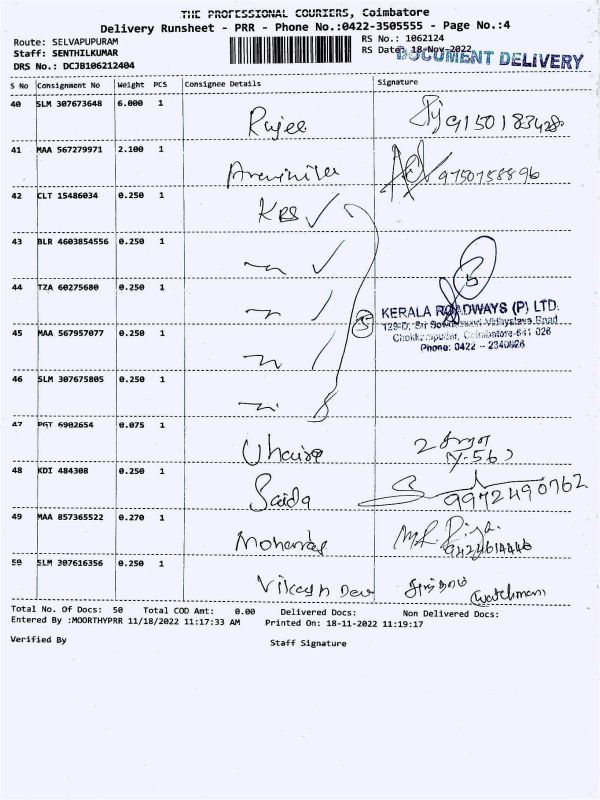 THE PROFESSIONAL COURIERS, Coimbatore
Delivery Runsheet - PRR - Phone No.:0422-3505555 - Page No.:4
Route: SELVAPUPURAM
RS No.: 1062124
Staff: SENTHILKUMAR
RS Date: 18-Nov-2022
DOCUMENT DELIVERY
DRS No.: DCJB106212404
S No Consignment No Weight PCS Consignee Details Signature
40 SLM 307673648 6.000 1 Rajee 9150183428
41 MAA 567279971 2.100 1 9750758896
42 CLT 15486034 0.250 1 KRS
43 BLR 4603854556 0.250 1
44 TZA 60275680 0.250 1
5
5
KERALA ROADWAYS (P) LTD.
129-D, Sri
Coimbatore-641 026
Phone: 0422 - 2340926
45 MAA 567957077 0.250 1
46 SLM 307675805 0.250 1
47 PGT 6902654 0.075 1
48 KDI 484308 0.250 1 Saida 9972490762
49 MAA 857365522 0.270 1 9424614446
50 SLM 307616356 0.250 1 Vikash Dev (watchman)
Total No. Of Docs: 50 Total COD Amt: 0.00 Delivered Docs: Non Delivered Docs:
Entered By :MOORTHYPRR 11/18/2022 11:17:33 AM Printed On: 18-11-2022 11:19:17
Verified By Staff Signature